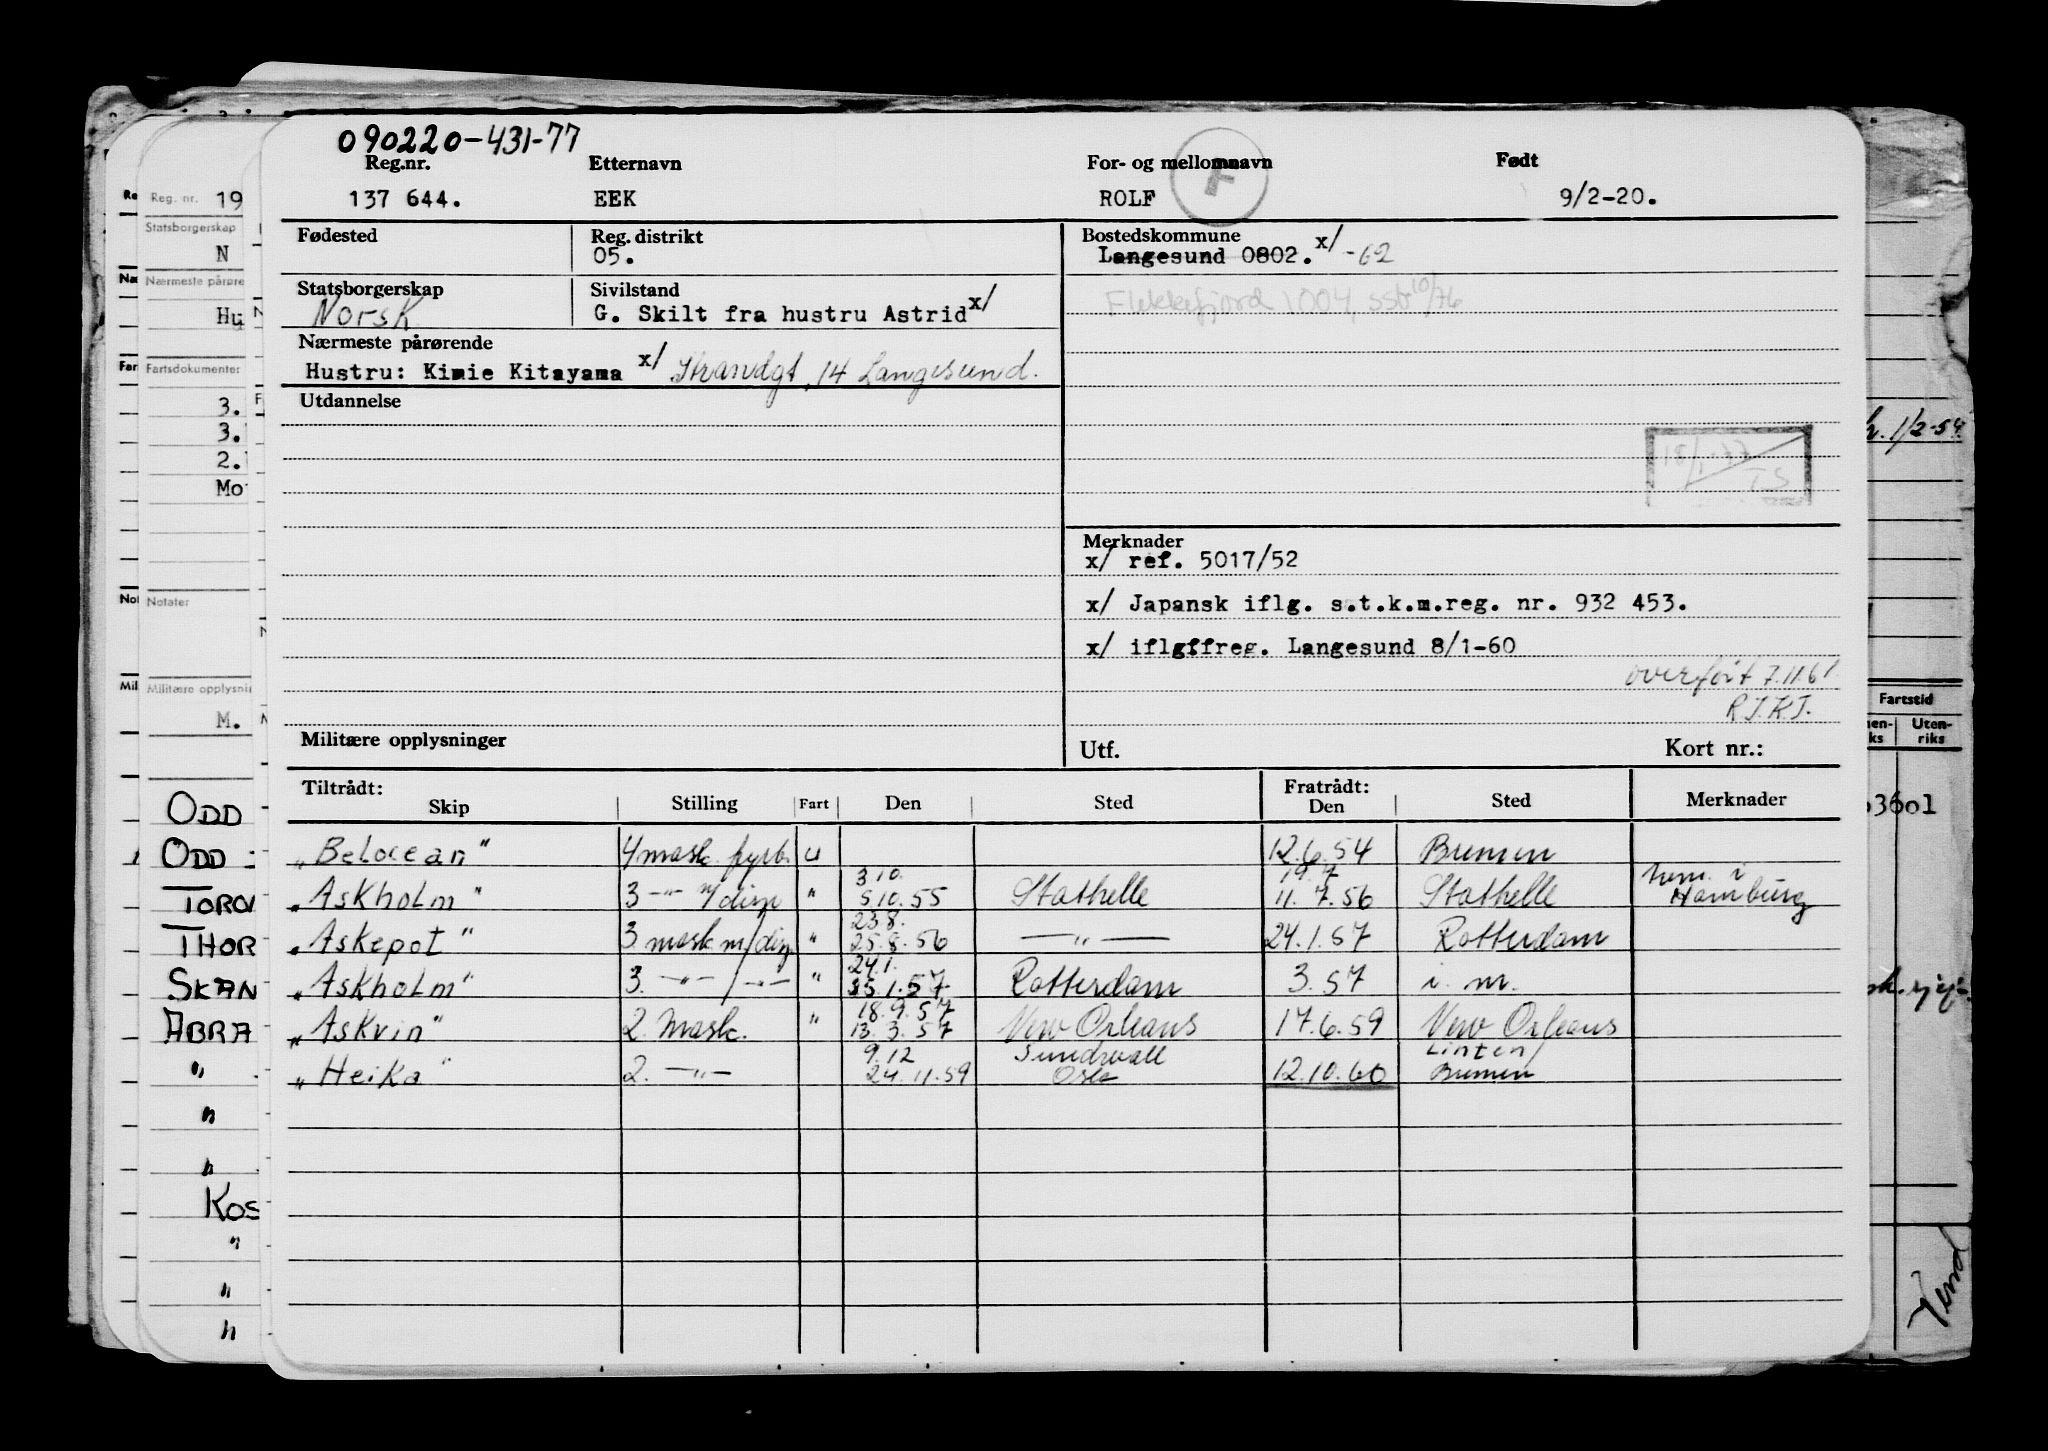 090220-431-77
Reg.nr. Etternavn For- og mellomnavn Født
137 644. EEK ROLF 9/2-20.
F
Fødested Reg. distrikt Bostedskommune
05. Langesund 0802. x/ -62
Statsborgerskap Sivilstand
Norsk G. Skilt fra hustru Astrid x/
Flekkefjord 1004, ssb 10/76
Nærmeste pårørende
Hustru: Kimie Kitayama x/ Strandgt. 14 Langesund.
Utdannelse
18/1-77
TS
Merknader
x/ ref. 5017/52
x/ Japansk iflg. s.t.k.m.reg. nr. 932 453.
x/ iflgffreg. Langesund 8/1-60
overført 7.11.61.
Militære opplysninger Utf. Kort nr.:
Tiltrådt: Fratrådt:
Skip Stilling Fart Den Sted Den Sted Merknader
"Belocean" 4 mask. fyrb. u 12.6.54 Bremen
3.10. 19.7 hem. i
"Askholm" 3 -"- m/disp " 5.10.55 Stathelle 11.7.56 Stathelle Hamburg
23.8.
"Askepot" 3. mask m/disp " 25.8.56 -"- 24.1.57 Rotterdam
24.1.
"Askholm" 3. -"- / -"- " 25.1.57 Rotterdam 3.57 i. m.
18.9.57
"Askvin" 2. Mask. " 13.3.57 New Orleans 17.6.59 New Orleans
9.12 Sundsvall
"Heika" 2. -"- 24.11.59 Oslo 12.10.60 Bremen
Reg. nr. 19
Statsborgerskap
N
Nærmeste pårøre
Hu
Fartsdokumenter
3.
3.
2.
Mo
Notater
Militære opplysni
M.
ODD
ODD
TORO
THOR
SKAN
ABRA
"
"
"
KOS
"
"
"
h. 1/2-54.
Fartstid
Uten-
riks
3601